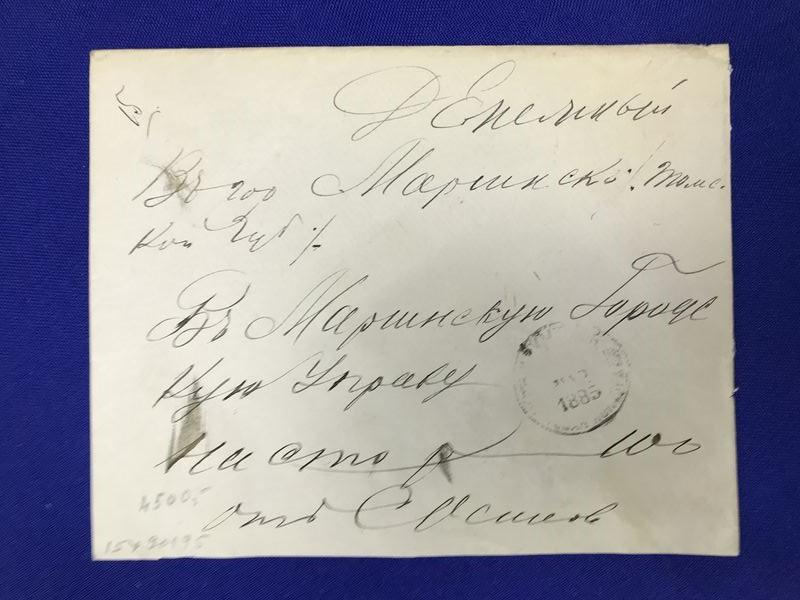 Денежный
Въ гор Мариинскъ /. Томс-
кой Губ /.
Въ Мариинскую Городс
кую Управу
на сто р 100
отъ С Осипов
1885
45005